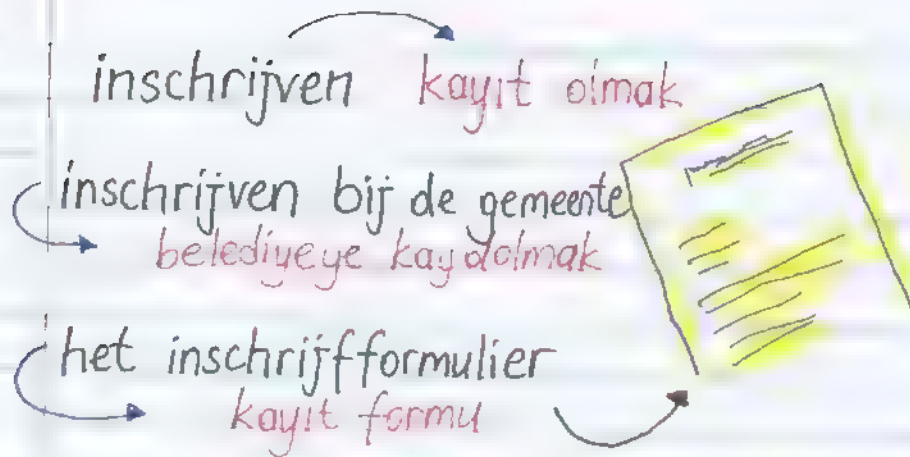 inschrijven kayıt olmak
inschrijven bij de gemeente
belediyeye kaydolmak
het inschrijfformulier
kayıt formu